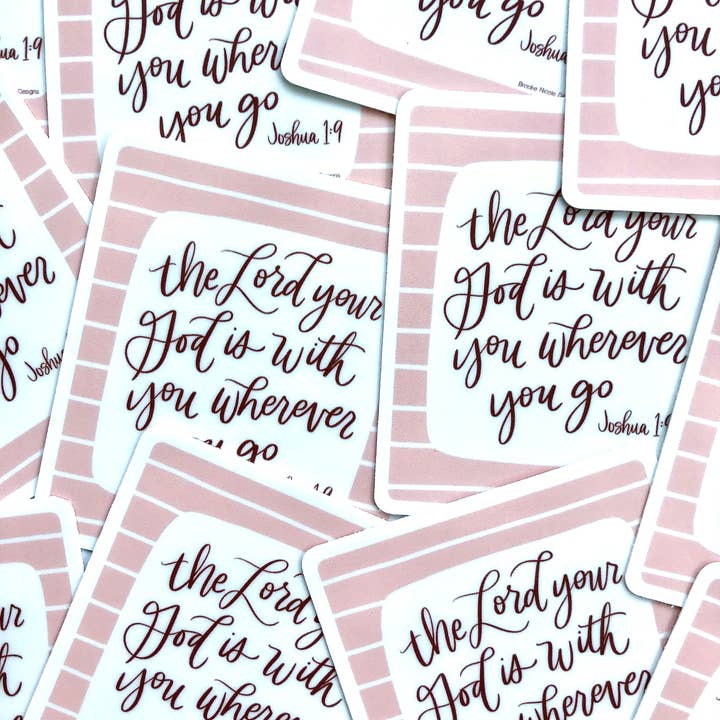 God is
you wher
you go
Joshua 1:9
you go
Joshua
Brooke Nicole
you
Designs
the Lord your
God is with
you wherever
you go
the Lord your
God is with
you wherever
you go
Joshua 1:9
go
Joshua
the Lord
God is with
you wherever
the Lord your
God is with
you wherever